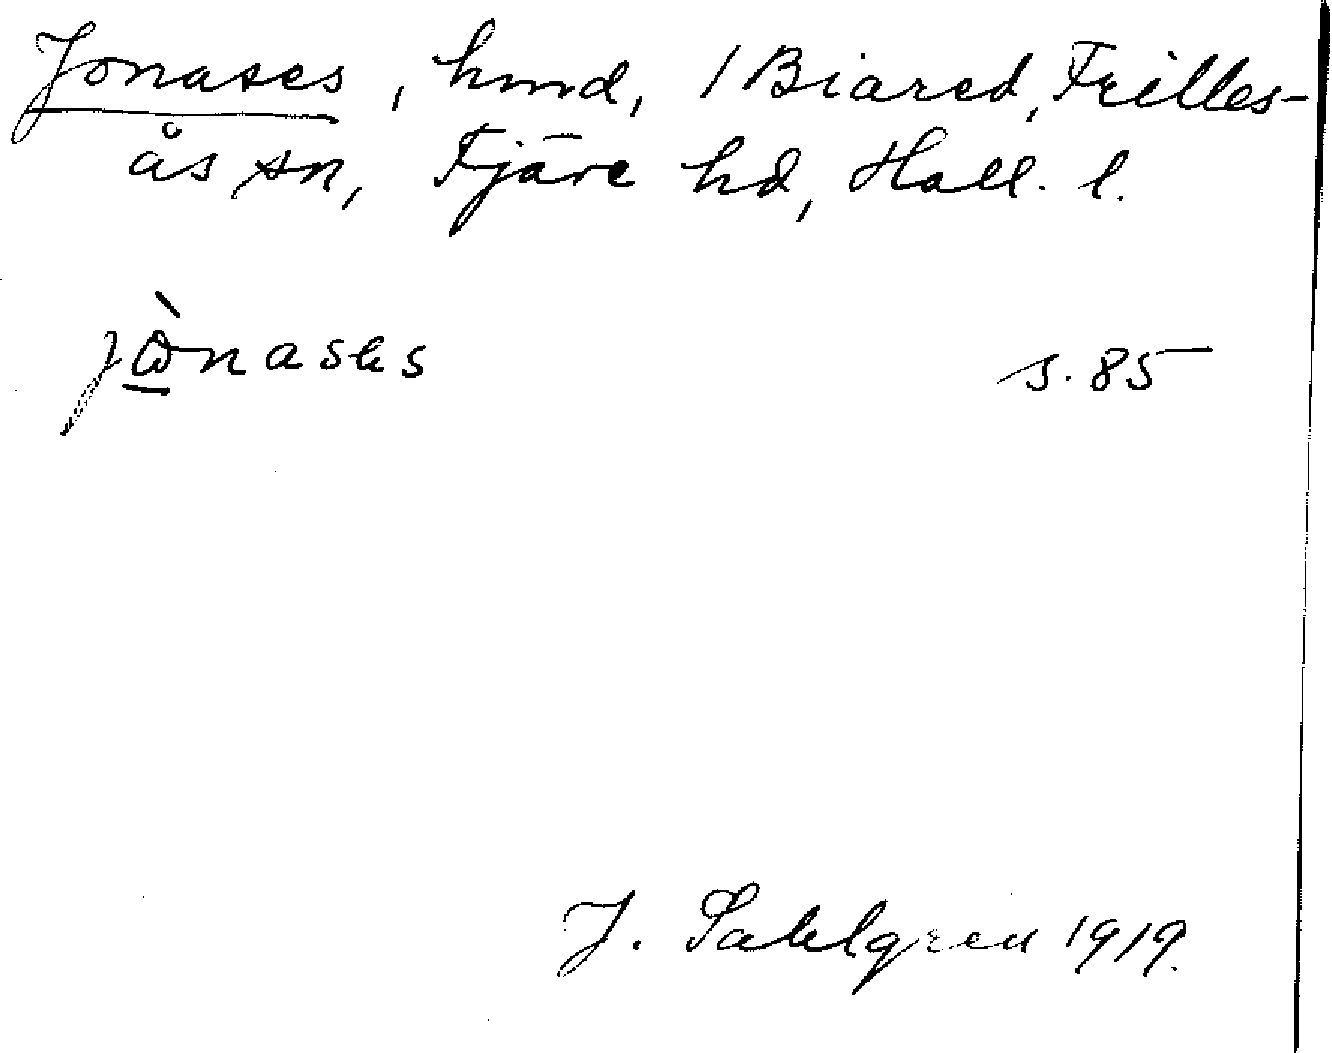 Jonases, hmd, 1 Biared, Frilles-
ås sn, Fjäre hd, Hall. l.
s. 85
J. Sahlgren 1919.